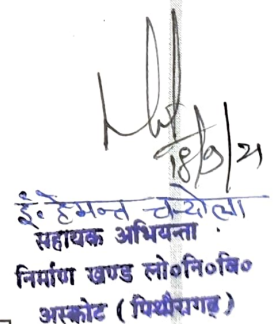 18/9/21
इं. हेमन्त चन्दोला
सहायक अभियन्ता
निर्माण खण्ड लो०नि०वि०
अस्कोट (पिथौरागढ़)